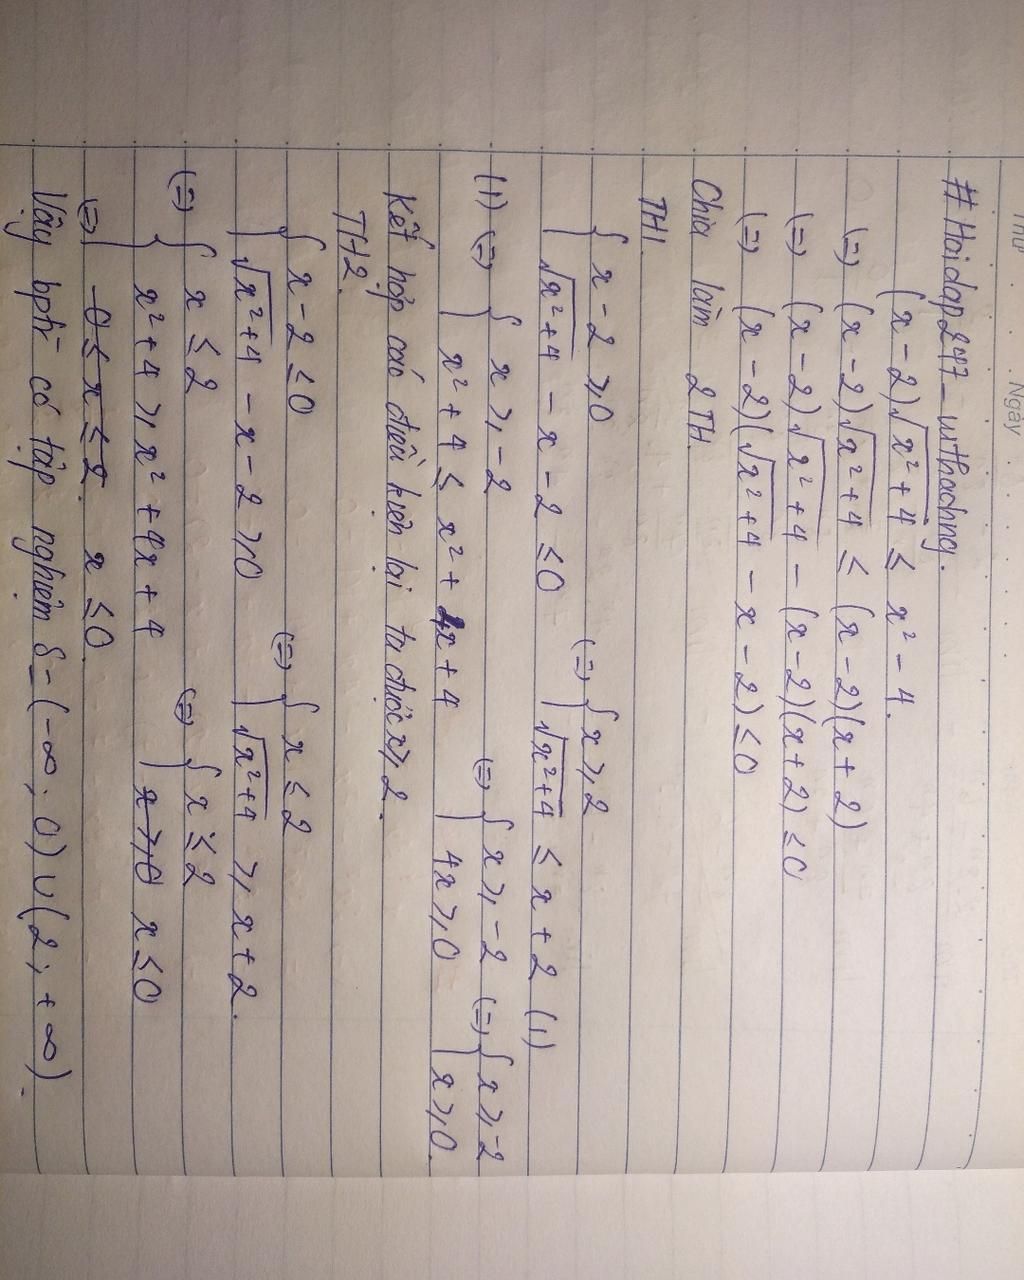 Thứ . . . Ngày . . . .
# Hoidap247_wthachng.
(x-2)√x²+4 ≤ x²-4.
(=) (x-2)√x²+4 ≤ (x-2)(x+2)
(=) (x-2)√x²+4 - (x-2)(x+2) ≤ 0
(=) (x-2)(√x²+4 - x-2) ≤ 0
Chia làm 2TH
TH1.
{ x-2 ⩾ 0 (=) { x ⩾ 2
√x²+4 - x - 2 ≤ 0 √x²+4 ≤ x+2 (1)
(1) (=) { x ⩾ -2 (=) { x ⩾ -2 (=) { x ⩾ -2
x²+4 ≤ x²+4x+4 4x ⩾ 0 x ⩾ 0.
Kết hợp các điều kiện lại ta được x ⩾ 2.
TH2.
{ x-2 ≤ 0 (=) { x ≤ 2
√x²+4 - x - 2 ⩾ 0 √x²+4 ⩾ x+2.
(=) { x ≤ 2 (=) { x ≤ 2
x²+4 ⩾ x²+4x+4 x ⩾ 0 x ≤ 0
(=) 0 ≤ x ≤ 2. x ≤ 0
Vậy bptr có tập nghiệm S = (-∞; 0) ∪ (2; +∞).